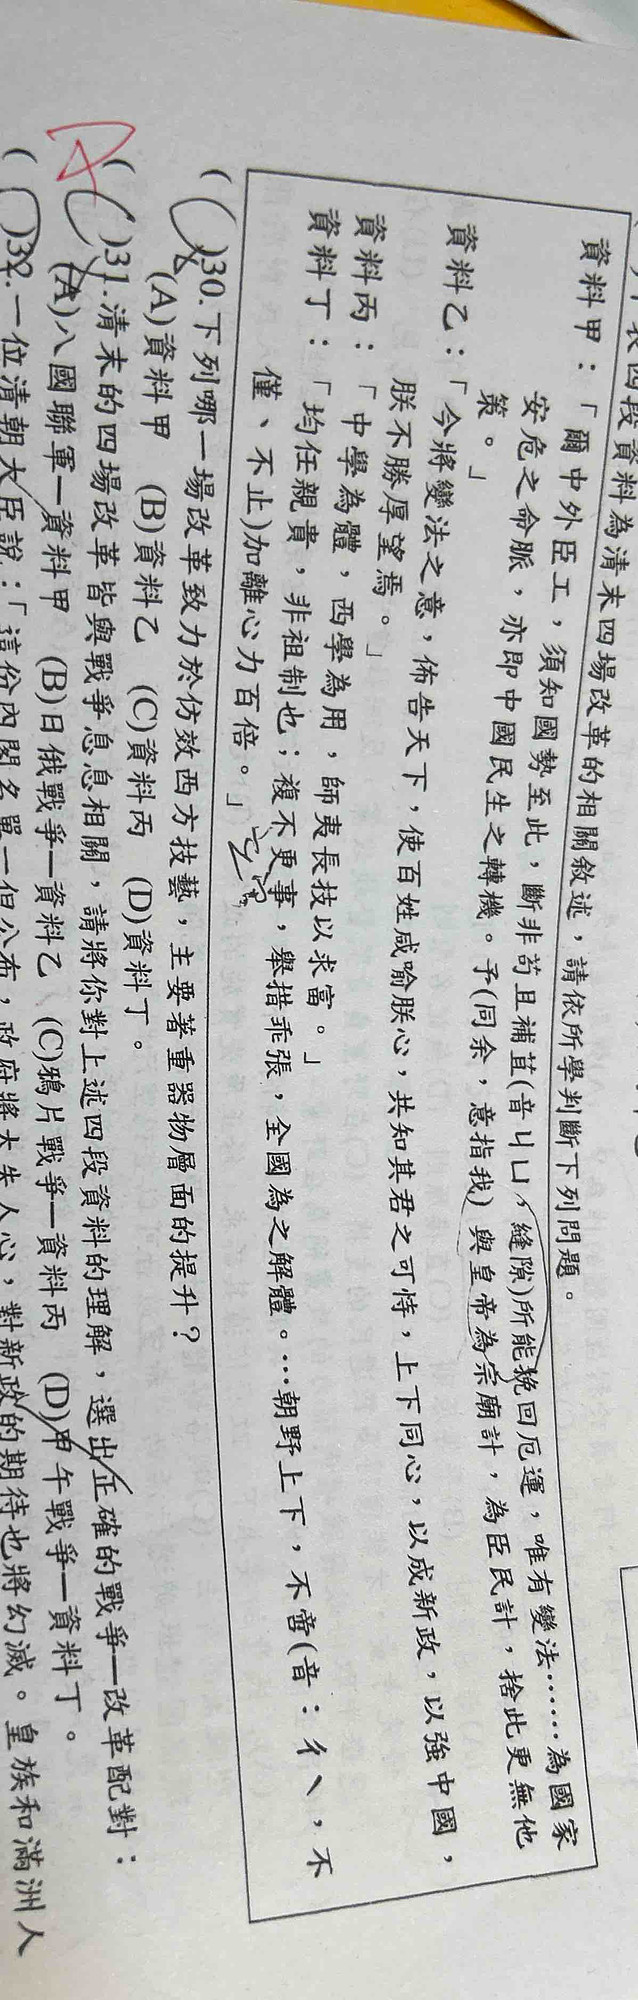 下表四段資料為清末四場改革的相關敘述，請依所學判斷下列問題。
資料甲：「爾中外臣工，須知國勢至此，斷非苟且補苴(音ㄐㄩ，縫隙)所能挽回厄運，唯有變法……為國家
安危之命脈，亦即中國民生之轉機。予(同余，意指我)與皇帝為宗廟計，為臣民計，捨此更無他
策。」
資料乙：「今將變法之意，佈告天下，使百姓咸喻朕心，共知其君之可恃，上下同心，以成新政，以強中國，
朕不勝厚望焉。」
資料丙：「中學為體，西學為用，師夷長技以求富。」
資料丁：「均任親貴，非祖制也；複不更事，舉措乖張，全國為之解體。…朝野上下，不啻(音：ㄔˋ，不
僅、不止)加離心力百倍。」
( )30.下列哪一場改革致力於仿效西方技藝，主要著重器物層面的提升？
(A)資料甲 (B)資料乙 (C)資料丙 (D)資料丁。
A
( )31.清末的四場改革皆與戰爭息息相關，請將你對上述四段資料的理解，選出正確的戰爭—改革配對：
(A)八國聯軍—資料甲 (B)日俄戰爭—資料乙 (C)鴉片戰爭—資料丙 (D)甲午戰爭—資料丁。
( )32.一位清朝大臣說：「這份內閣名單一但公布，政府將大失人心，對新政的期待也將幻滅。皇族和滿洲人